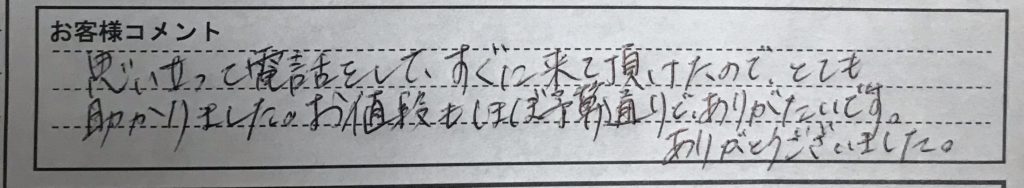 お客様コメント
思い立って電話をして、すぐに来て頂けたので、とても
助かりました。お値段もほぼ予算通りで、ありがたいです。
ありがとうございました。